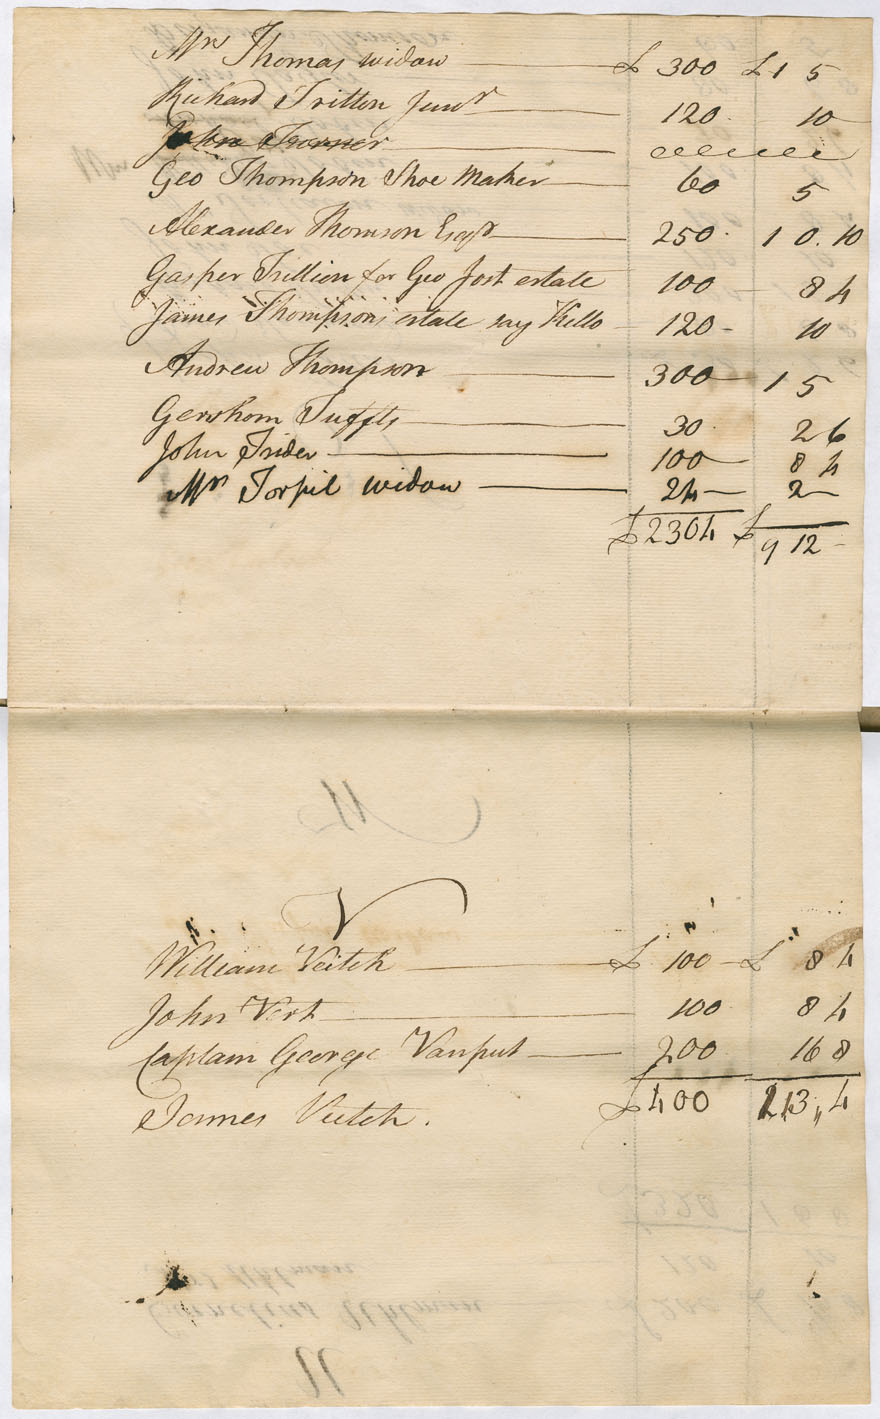 Mrs Thomas widow £ 300 £1 5
Richard Tritton Junr 120 10
John Turner
Geo Thompson Shoe Maker 60 5
Alexander Thomson Esqr 250 1 0.10
Gasper Trillion for Geo Jost estate 100 8 4
James Thompson's estate say Kello 120 10
Andrew Thompson 300 1 5
Gershom Tuffts 30 2 6
John Trider 100 8 4
Mrs Torpil widow 24 2
£2304 £9 12
V
William Veitch £ 100 £ 8 4
John Vert 100 8 4
Captain George Vanput 200 16 8
£400 1,13,,4
James Veitch.